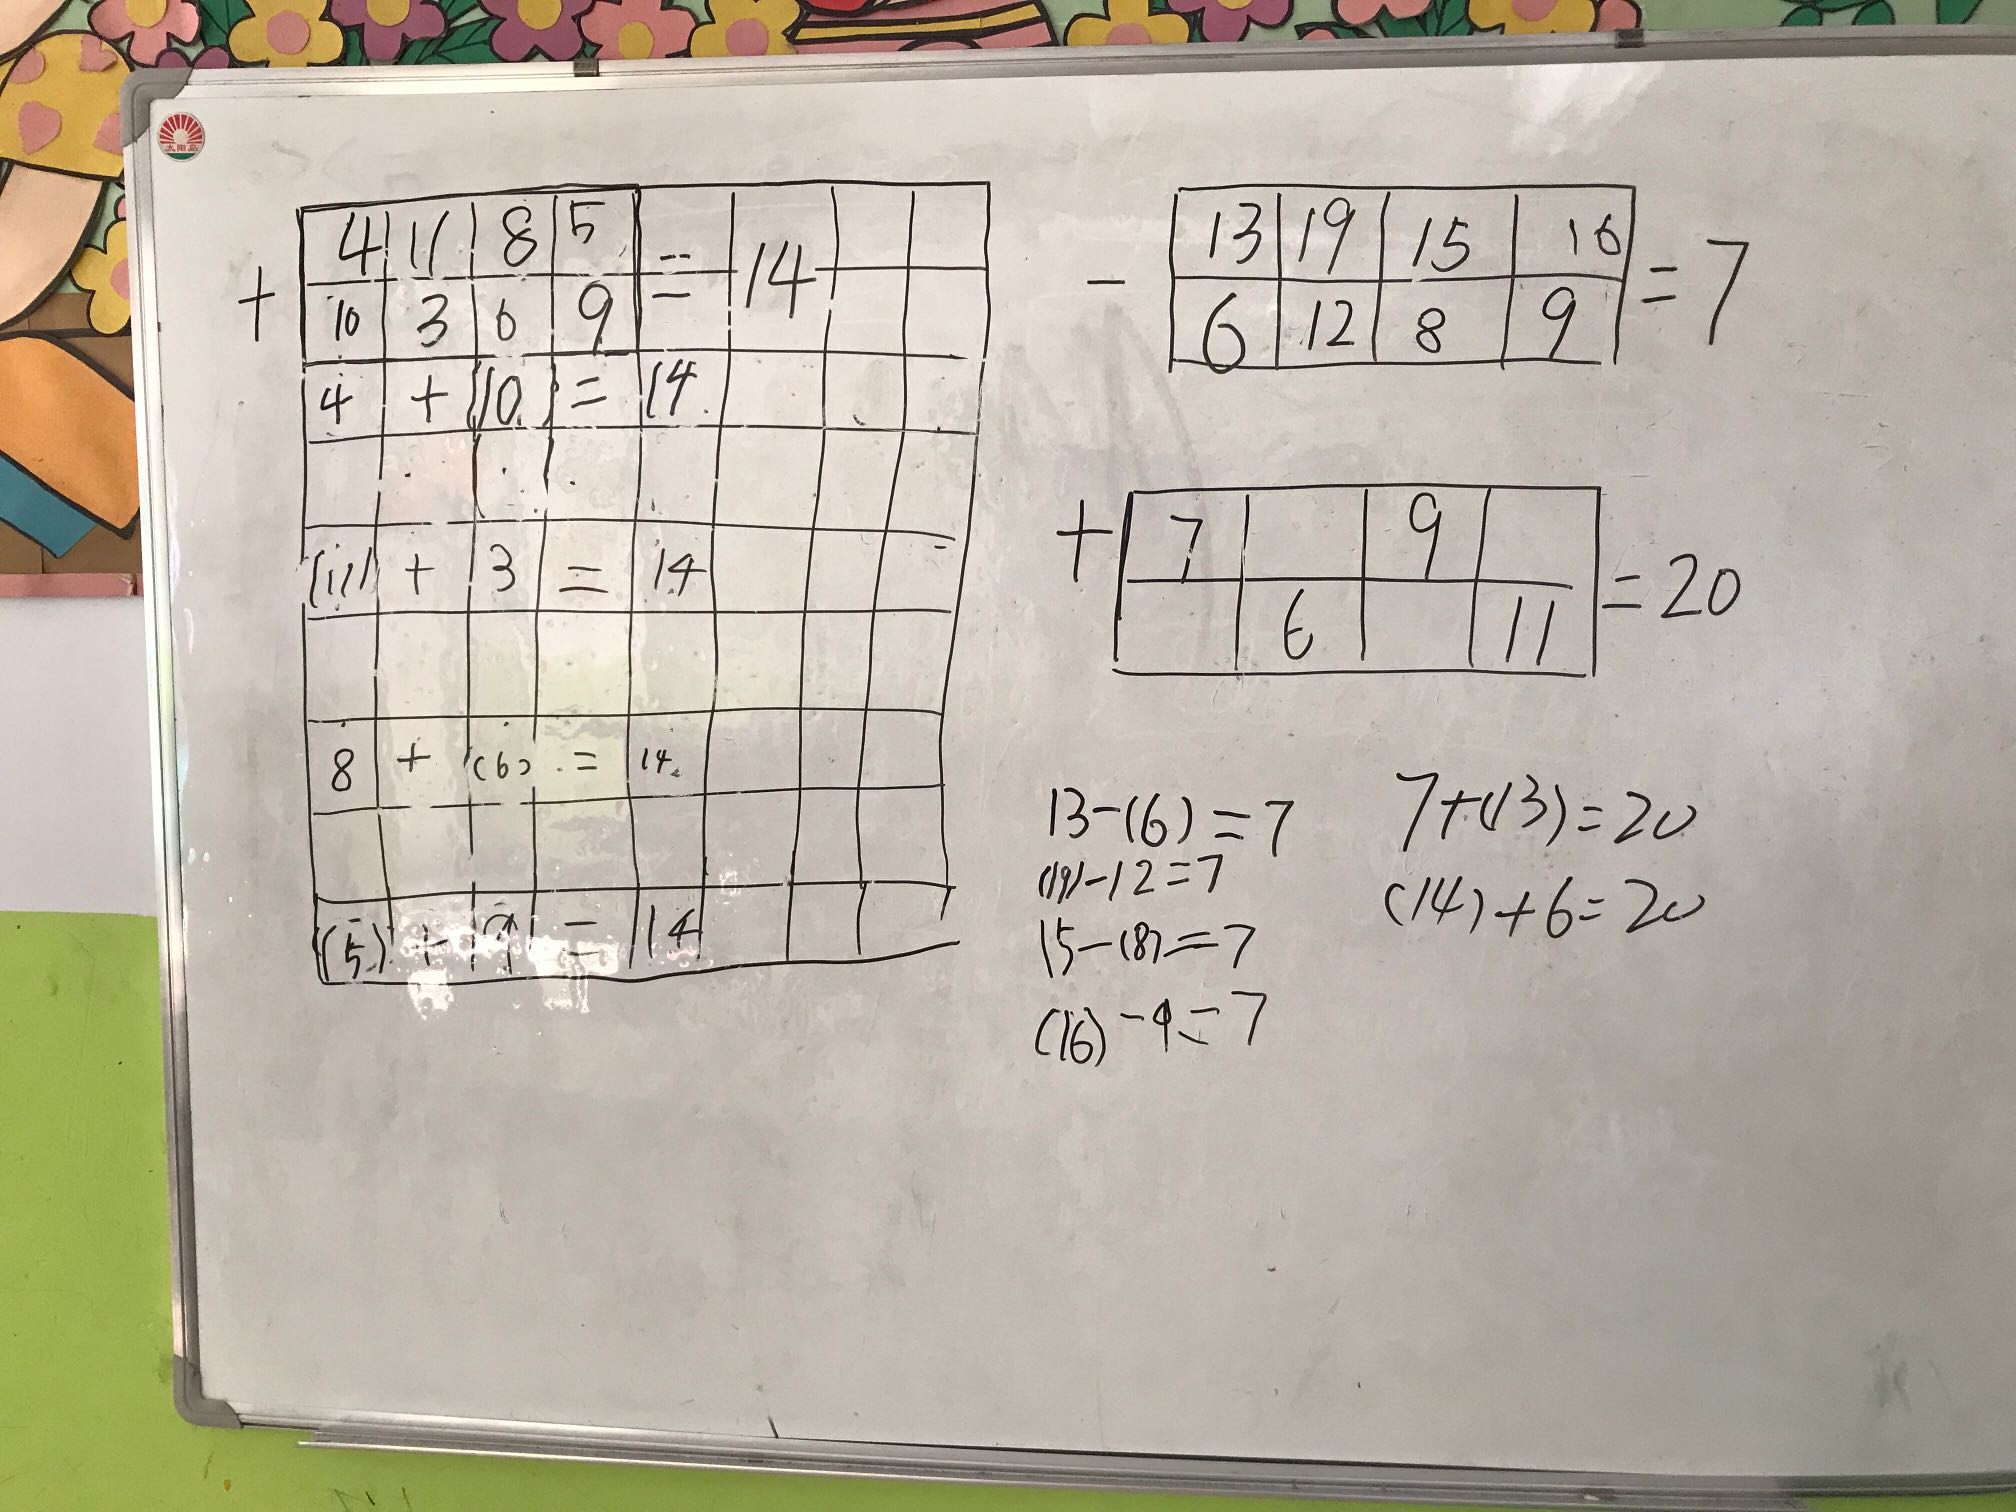 太阳岛
4 11 8 5
+ = 14
10 3 6 9
4 + (10) = 14
(11) + 3 = 14
8 + (6) = 14
(5) + 9 = 14
13 19 15 16
- = 7
6 12 8 9
7 9
+ = 20
6 11
13-(6)=7
(19)-12=7
15-(8)=7
(16)-9=7
7+(13)=20
(14)+6=20